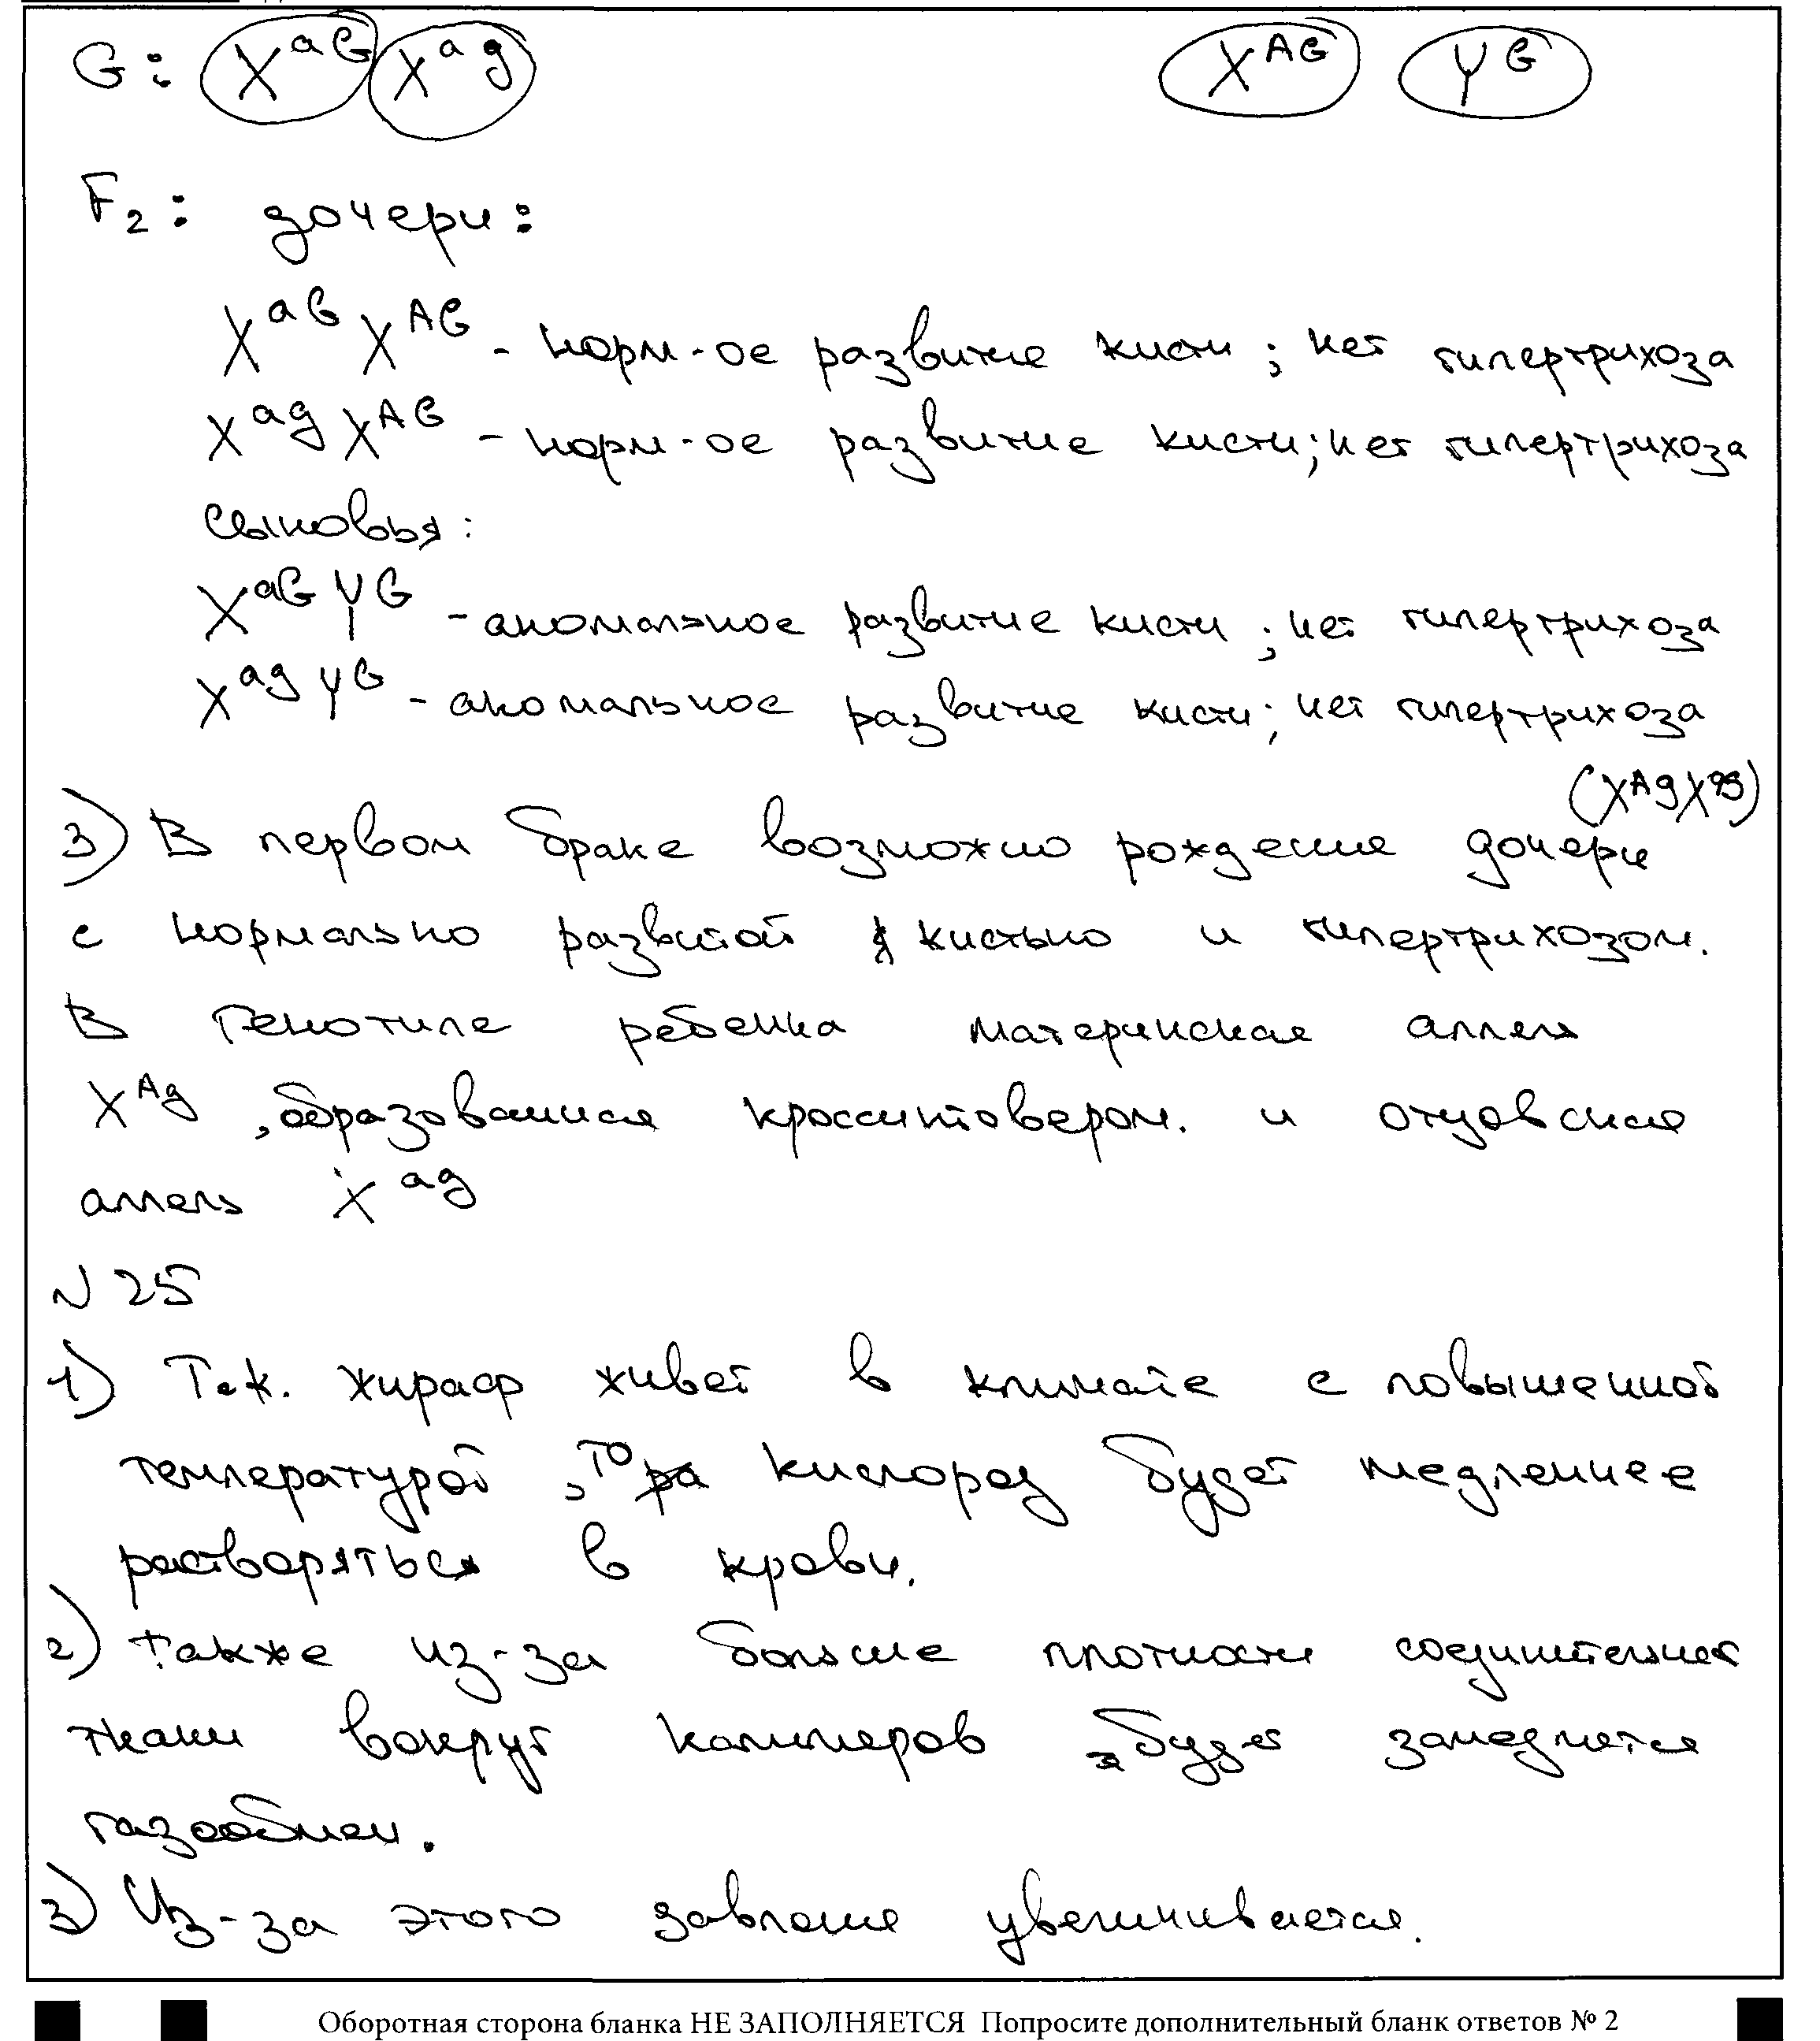 G: X^aB X^ag X^AB Y^B
F₂: дочери:
X^aB X^AB - норм-ое развитие кисти; нет гипертрихоза
X^ag X^AB - норм-ое развитие кисти; нет гипертрихоза
сыновья:
X^aB Y^B - аномальное развитие кисти; нет гипертрихоза
X^ag Y^B - аномальное развитие кисти; нет гипертрихоза
(X^Ag X^ag)
3) В первом браке возможно рождение дочери
с нормально развитой кистью и гипертрихозом.
В генотипе ребенка материнская аллель
X^Ag, образованная кроссинговером. и отцовская
аллель X^ag
N 25
1) Т.к. жираф живет в климате с повышенной
температурой, то кислород будет медленнее
растворяться в крови.
2) также из-за больше плотности соединительной
ткани вокруг капиляров будет замедлятся
газообмен.
3) Из-за этого давление увеличивается.
Оборотная сторона бланка НЕ ЗАПОЛНЯЕТСЯ Попросите дополнительный бланк ответов № 2